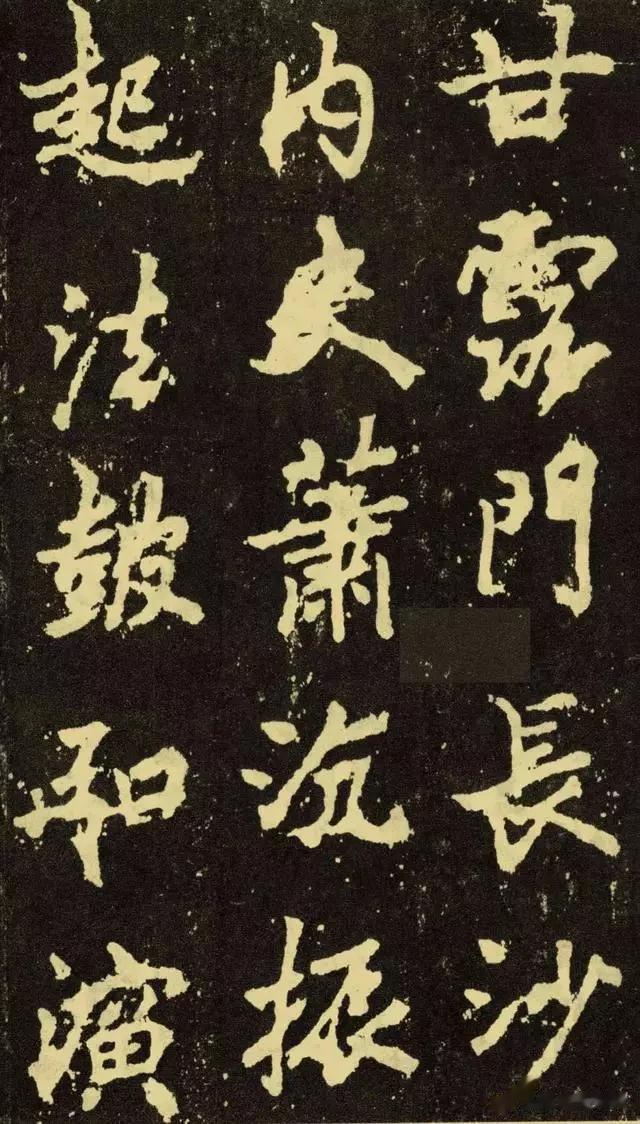 甘露門長沙
內史蕭沇振
起法鼓和演